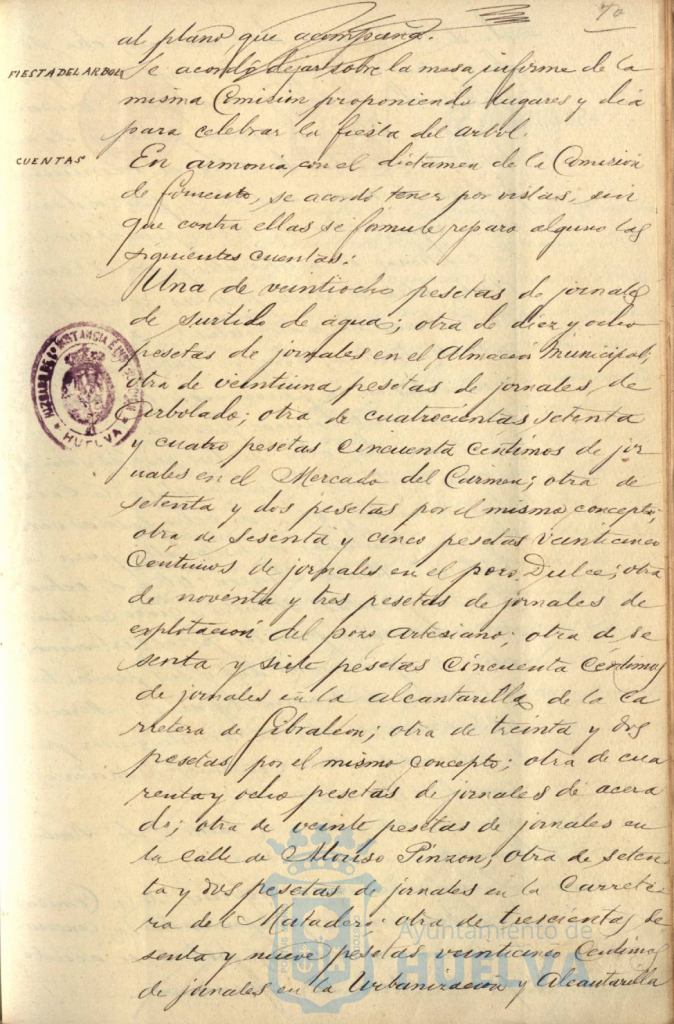 70
al plano, que acompaña.
FIESTA DEL ARBOL
Se acordó dejar sobre la mesa informe de la
misma Comision proponiendo lugares y dia
para celebrar la fiesta del arbol.
CUENTAS
En armonia con el dictamen de la Comision
de fomento, se acordó tener por vistas, sin
que contra ellas se formule reparo alguno las
siguientes cuentas:
Una de veintiocho pesetas de jornales
de surtido de agua; otra de diez y ocho
pesetas de jornales en el Almacen Municipal;
otra de veintiuna pesetas de jornales de
arbolado; otra de cuatrocientas setenta
y cuatro pesetas cincuenta centimos de jor
nales en el Mercado del Carmen; otra de
setenta y dos pesetas por el mismo concepto;
otra de sesenta y cinco pesetas veinticinco
centimos de jornales en el pozo Dulce; otra
de noventa y tres pesetas de jornales de
explotacion del pozo artesiano; otra de se
senta y siete pesetas cincuenta centimos
de jornales en la alcantarilla de la ca
rretera de Gibraleon; otra de treinta y dos
pesetas por el mismo concepto; otra de cua
renta y ocho pesetas de jornales de acera
do; otra de veinte pesetas de jornales en
la calle de Alonso Pinzon; otra de seten
ta y dos pesetas de jornales en la Carrete
ra del Matadero; otra de trescientas se
senta y nueve pesetas veinticinco centimos
de jornales en la Urbanizacion y Alcantarilla
HUELVA
Ayuntamiento de
HUELVA